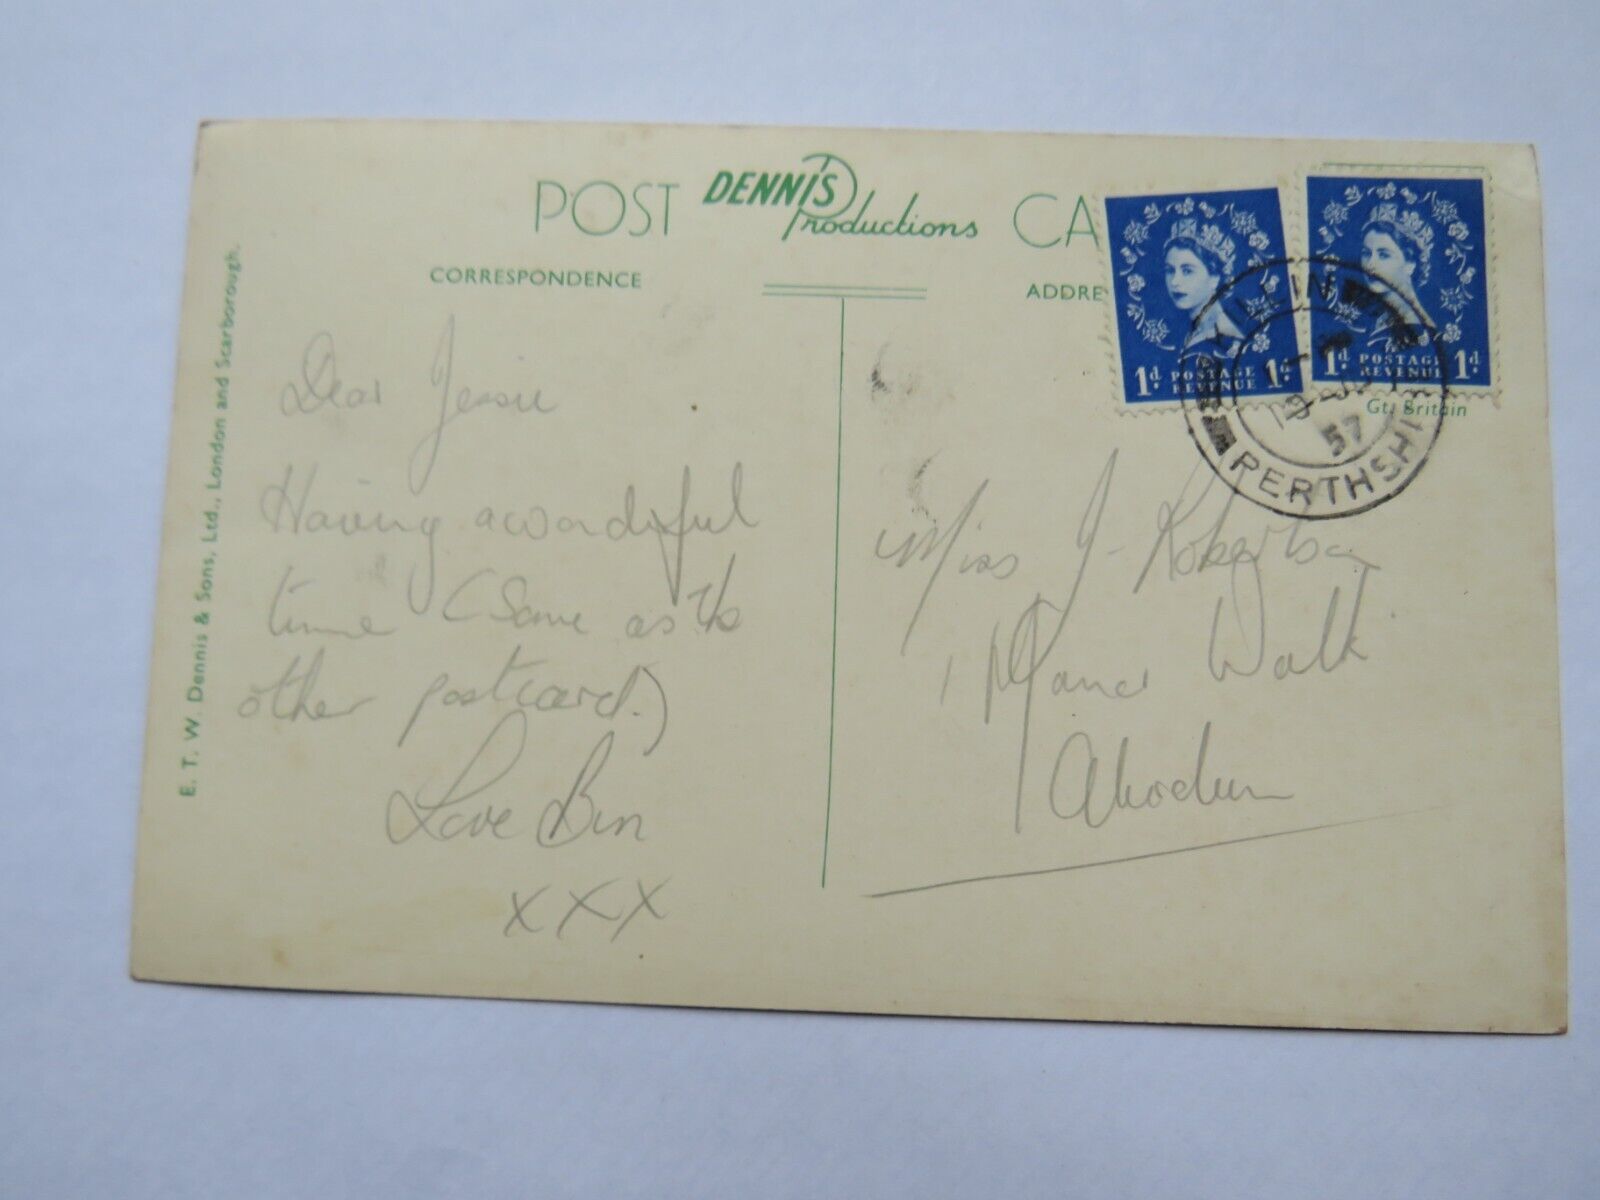 POST DENNIS Productions CA
CORRESPONDENCE
ADDRE
E. T. W. Dennis & Sons, Ltd., London and Scarborough.
1d. POSTAGE REVENUE 1d.
1d. POSTAGE REVENUE 1d.
KILLIN
57
PERTHSHIRE
Gt. Britain
Dear Jessie
Having a wonderful
time (Same as the
other postcard.)
Love Ben
XXX
Miss J. Robertson
1 Manor Walk
Aberdeen